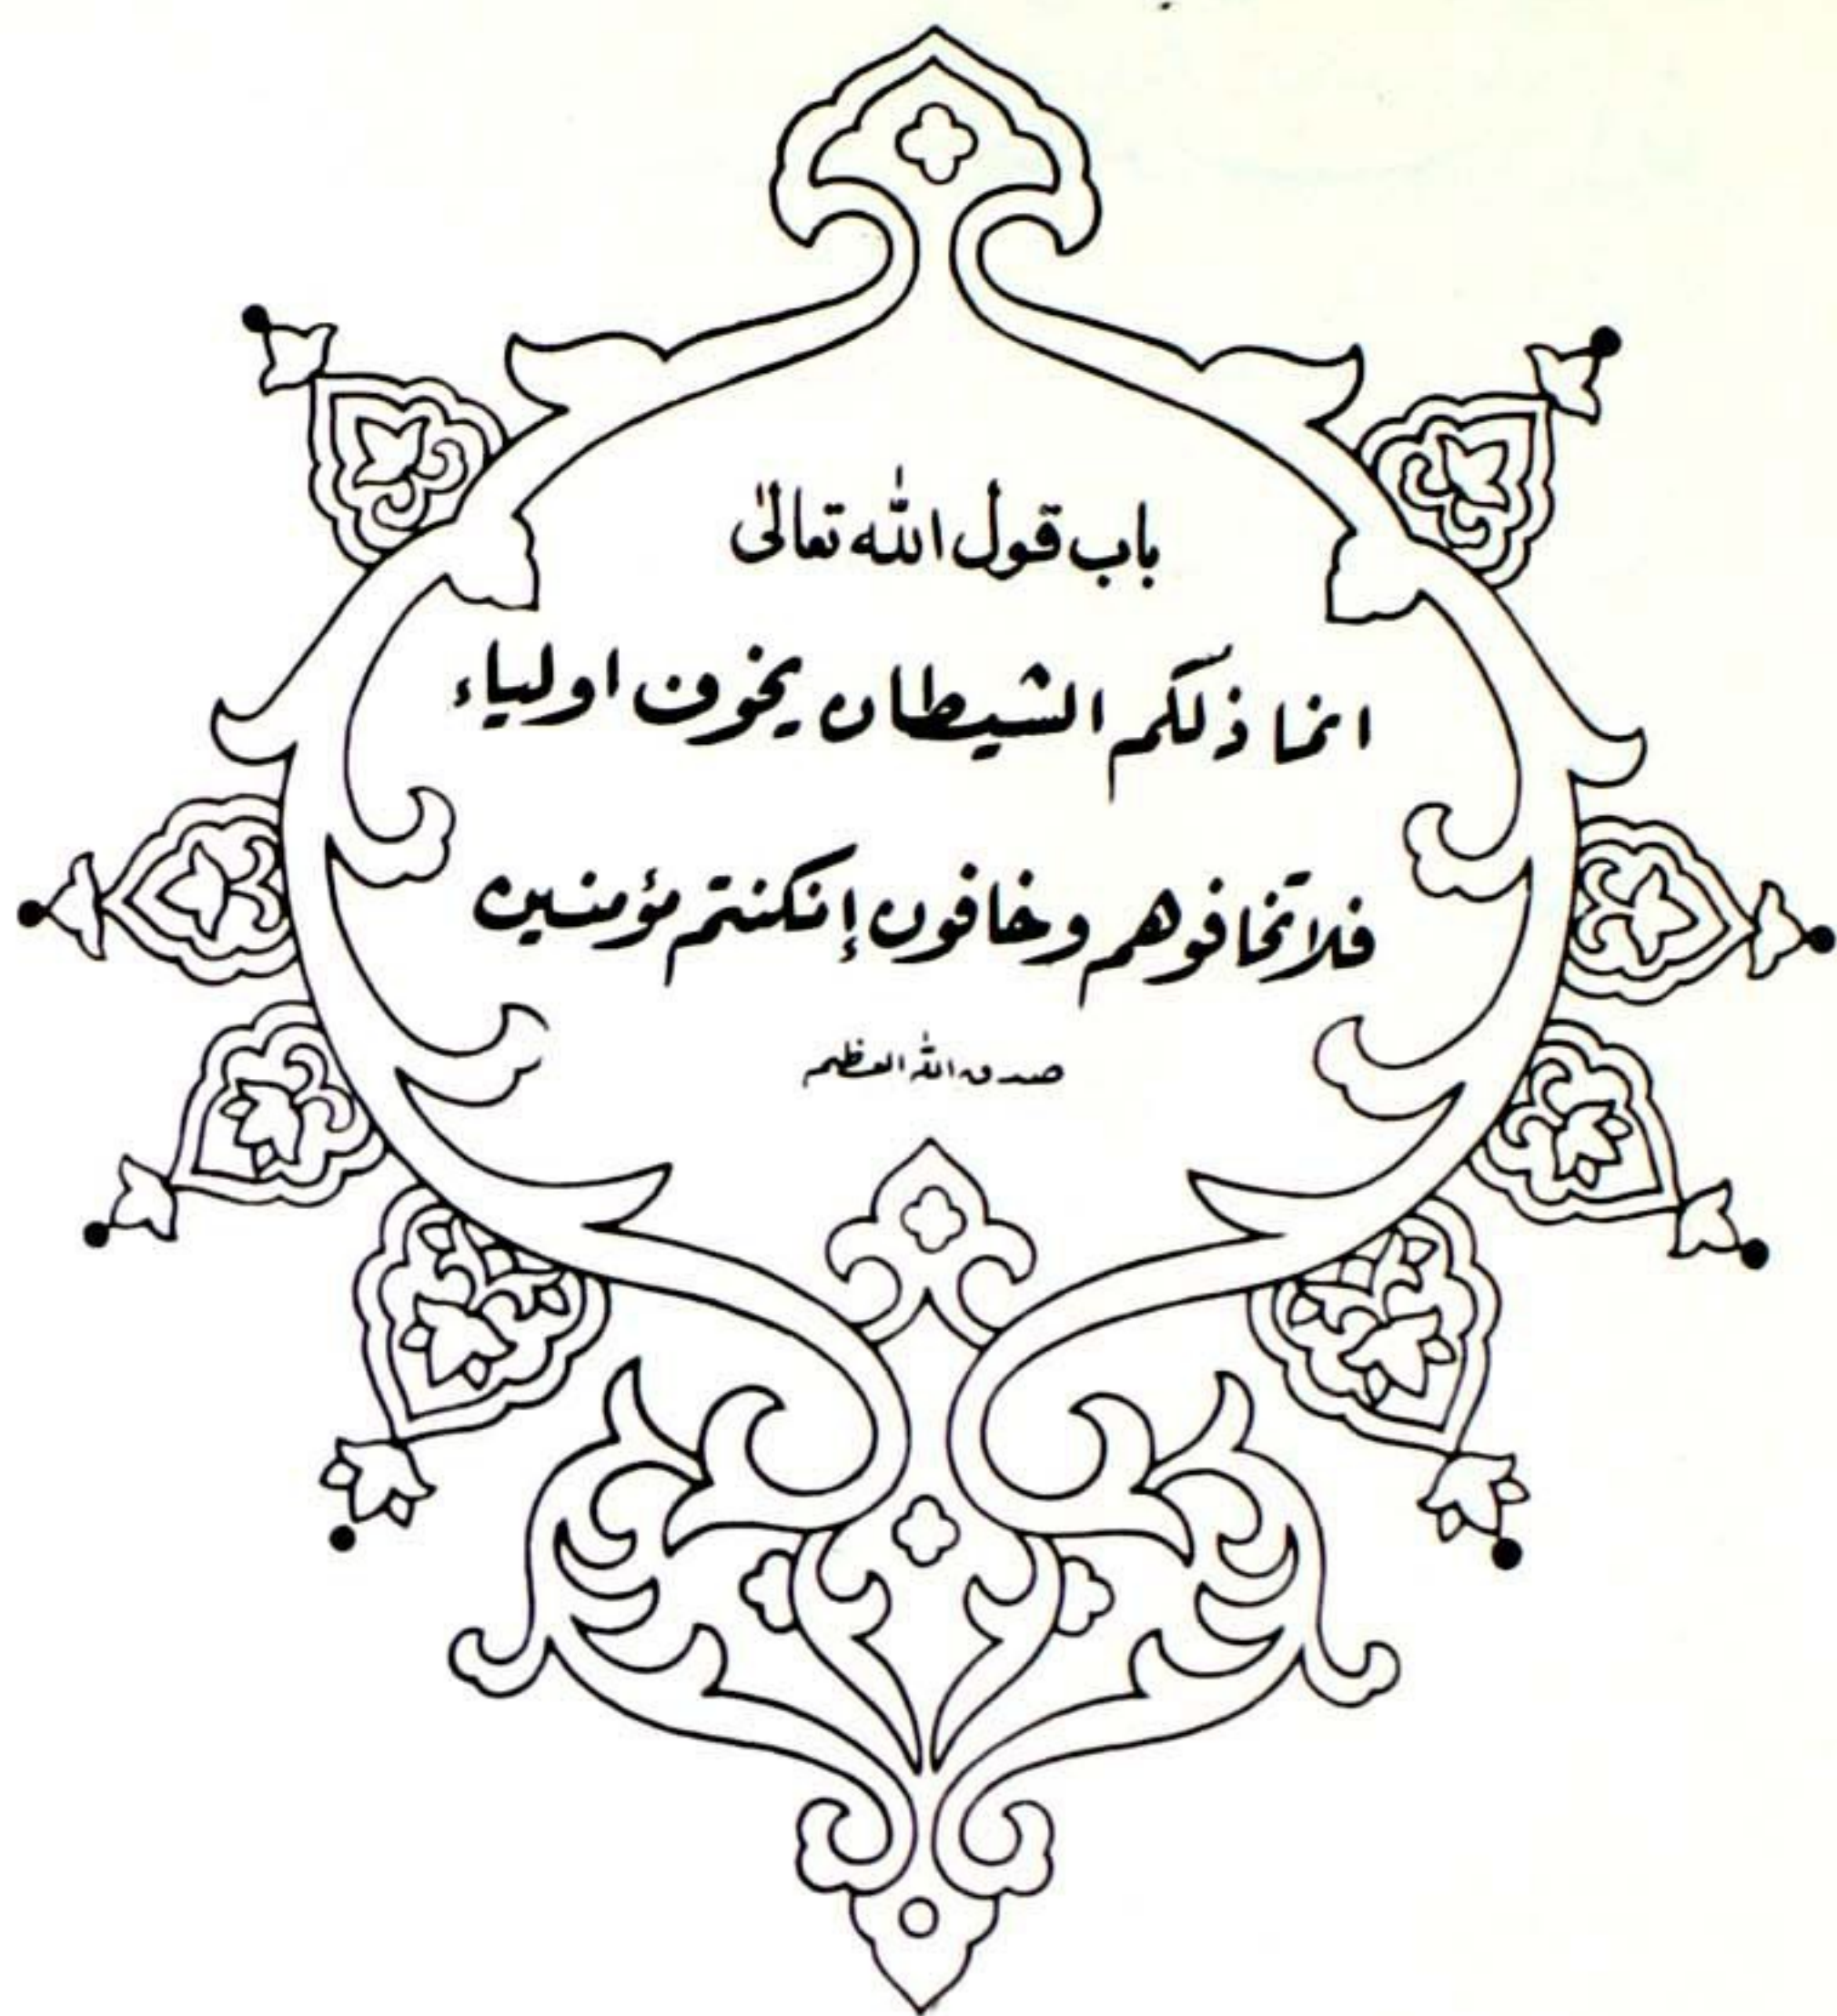 باب قول الله تعالى
انما ذلكم الشيطان يخوف اولياء
فلا تخافوهم وخافون إنكنتم مؤمنين
صدق الله العظيم